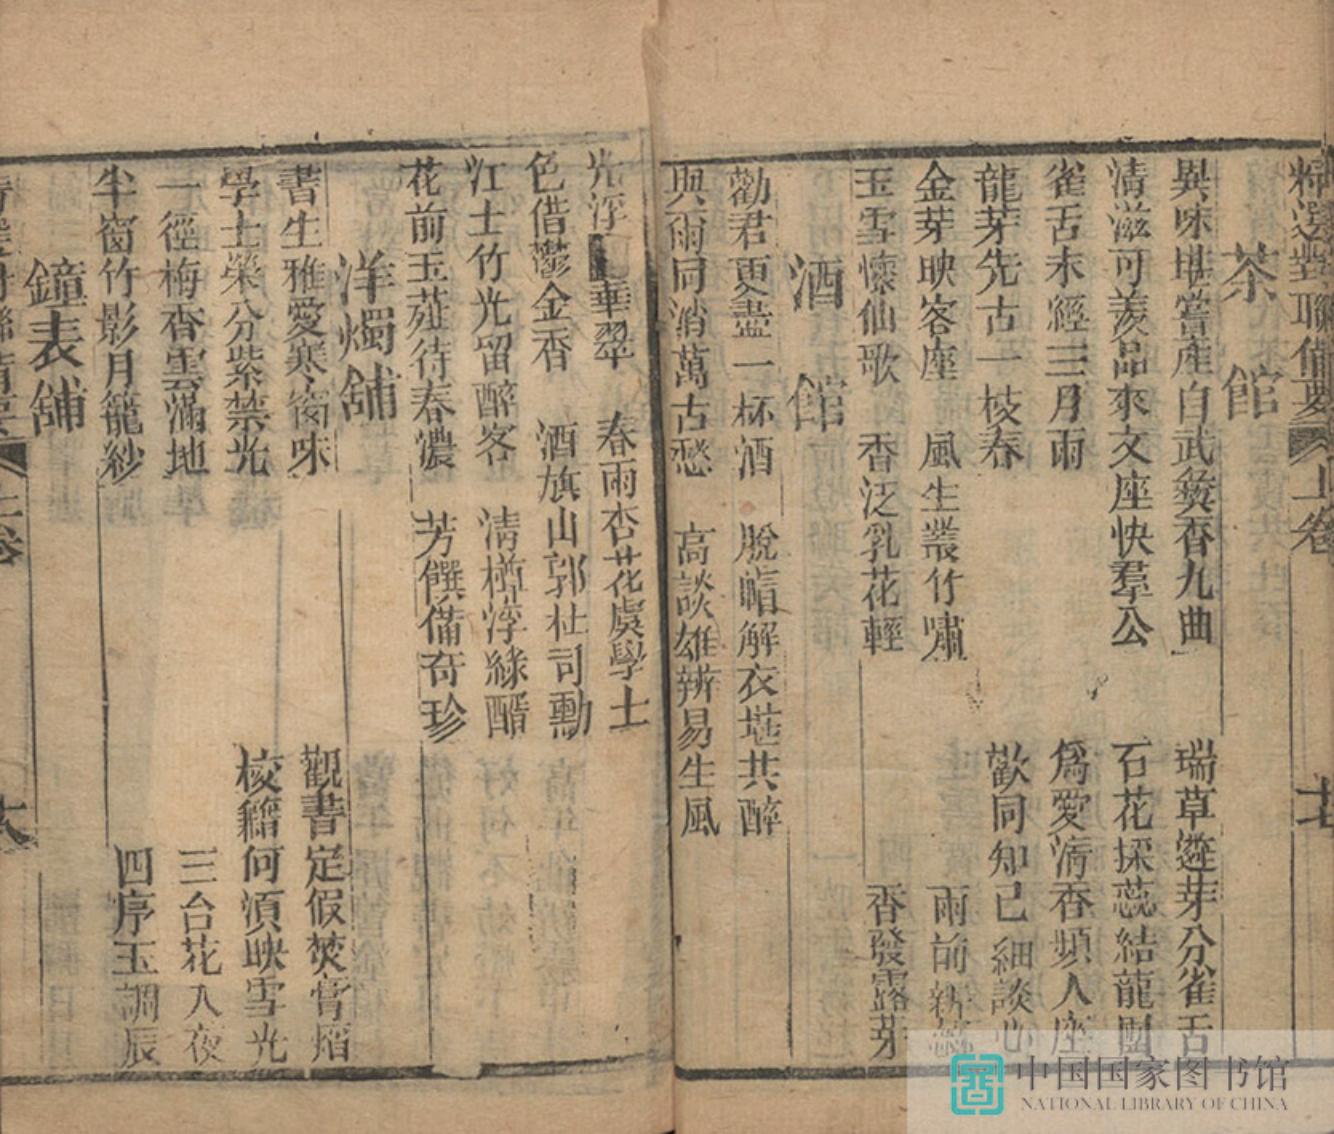 精選對聯備要 上卷
茶館
異味堪嘗產自武彞香九曲 瑞草遴芽分雀舌
清滋可羨品來文座快羣公 石花採蕊結龍團
雀舌未經三月雨 爲愛清香頻入座
龍芽先占一枝春 歡同知己細談心
金芽映客座 風生叢竹嘯 雨前新
玉雪懷仙歌 香泛乳花輕 香發露芽
酒館
勸君更盡一杯酒 脫帽解衣堪共醉
與爾同消萬古愁 高談雄辨易生風
光浮華翠 春雨杏花虞學士
色借鬱金香 酒旗山郭杜司勳
江土竹光留醉客 清樽浮綠醑
花前玉蕋待春濃 芳饌備奇珍
洋燭舖
書生雅愛寒窗味 觀書定假焚膏熖
學士榮分紫禁光 校籍何須映雪光
一徑梅香雲滿地 三台花入夜
半窗竹影月籠紗 四序玉調辰
鐘表舖
上卷
中国国家图书馆
NATIONAL LIBRARY OF CHINA